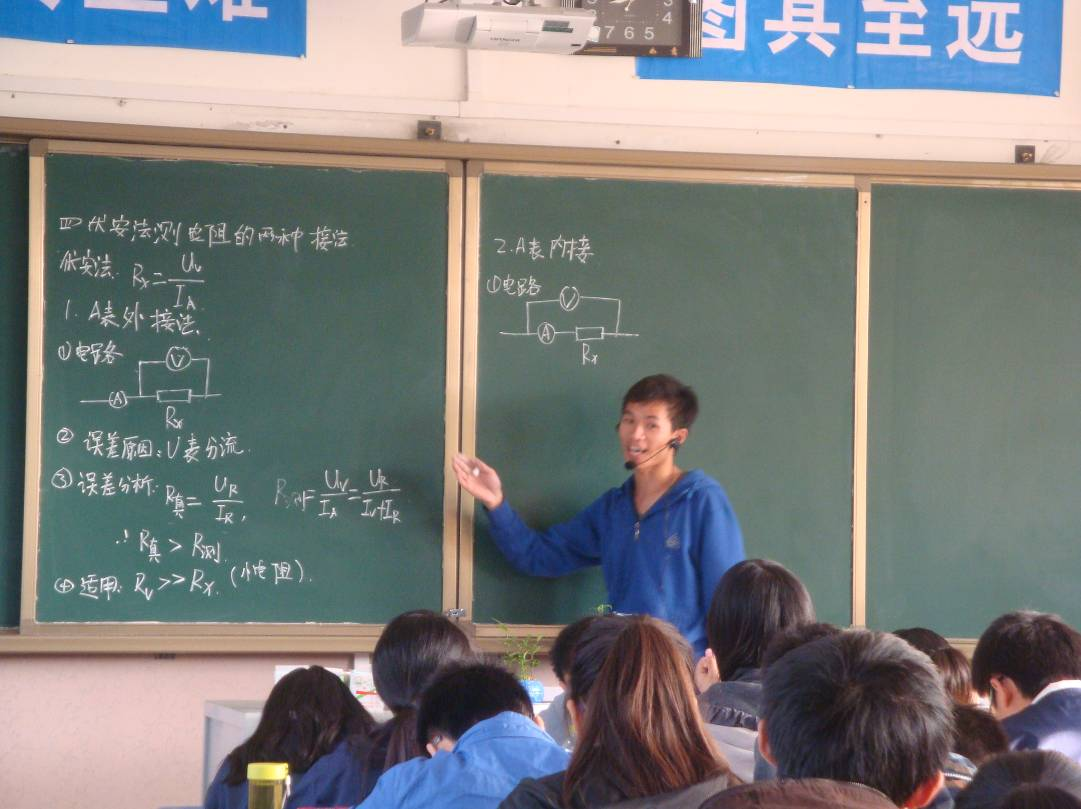 至远
3
3 4
7 6 5
HITACHI
四伏安法测电阻的两种接法
伏安法. Rx = Uv/IA
1. A表外接法.
①电路
V
A
Rx
② 误差原因: V表分流.
③ 误差分析: R真 = UR/IR, R测 = Uv/IA = UR/(Iv+IR)
∴ R真 > R测.
④ 适用: Rv >> Rx. (小电阻).
2. A表内接
①电路
V
A
Rx